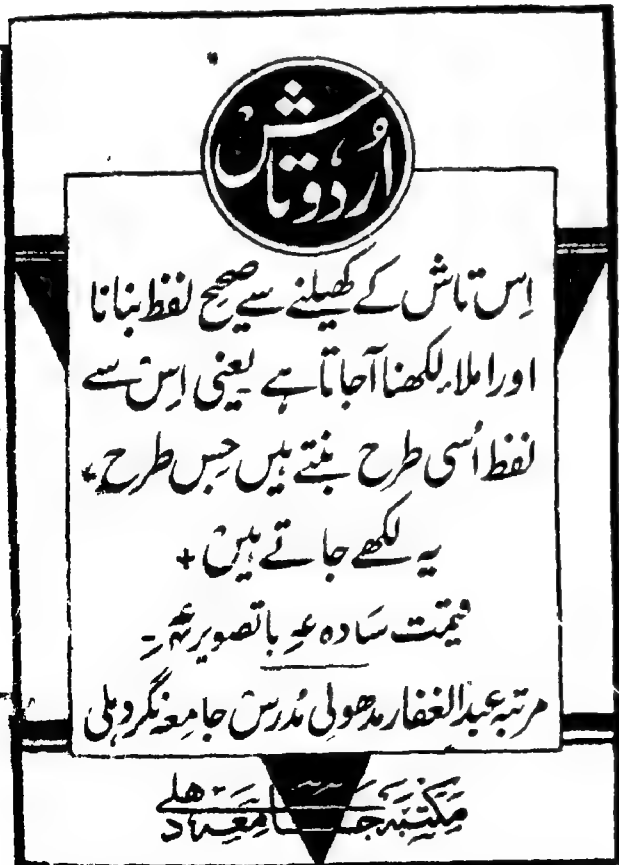 اُردو تاش
اِس تاش کے کھیلنے سے صحیح لفظ بنانا
اور املاء لکھنا آجاتا ہے یعنی اِس سے
لفظ اُسی طرح بنتے ہیں جس طرح
یہ لکھے جاتے ہیں +
قیمت سَادہ عہ باتصویر
مرتبہ عبدالغفار مدھولی مُدرس جامعہ نگر دہلی
مکتبہ جَامعہ دھلی